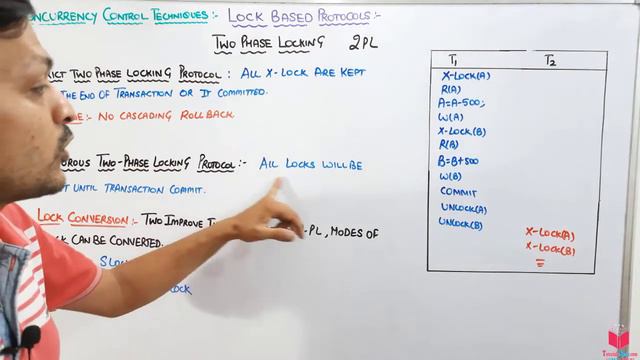 CONCURRENCY CONTROL TECHNIQUES:- LOCK BASED PROTOCOLS:-
TWO PHASE LOCKING 2PL
TWO PHASE LOCKING PROTOCOL: ALL X-LOCK ARE KEPT
THE END OF TRANSACTION OR IT COMMITTED.
:- NO CASCADING ROLLBACK
TWO-PHASE LOCKING PROTOCOL:- All LOCKS WILL BE
UNTIL TRANSACTION COMMIT.
LOCK CONVERSION:- TWO IMPROVE
PL, MODES OF
CAN BE CONVERTED.
T1 T2
X-LOCK(A)
R(A)
A=A-500;
W(A)
X-LOCK(B)
R(B)
B=B+500
W(B)
COMMIT
UNLOCK(A)
UNLOCK(B)
X-LOCK(A)
X-LOCK(B)